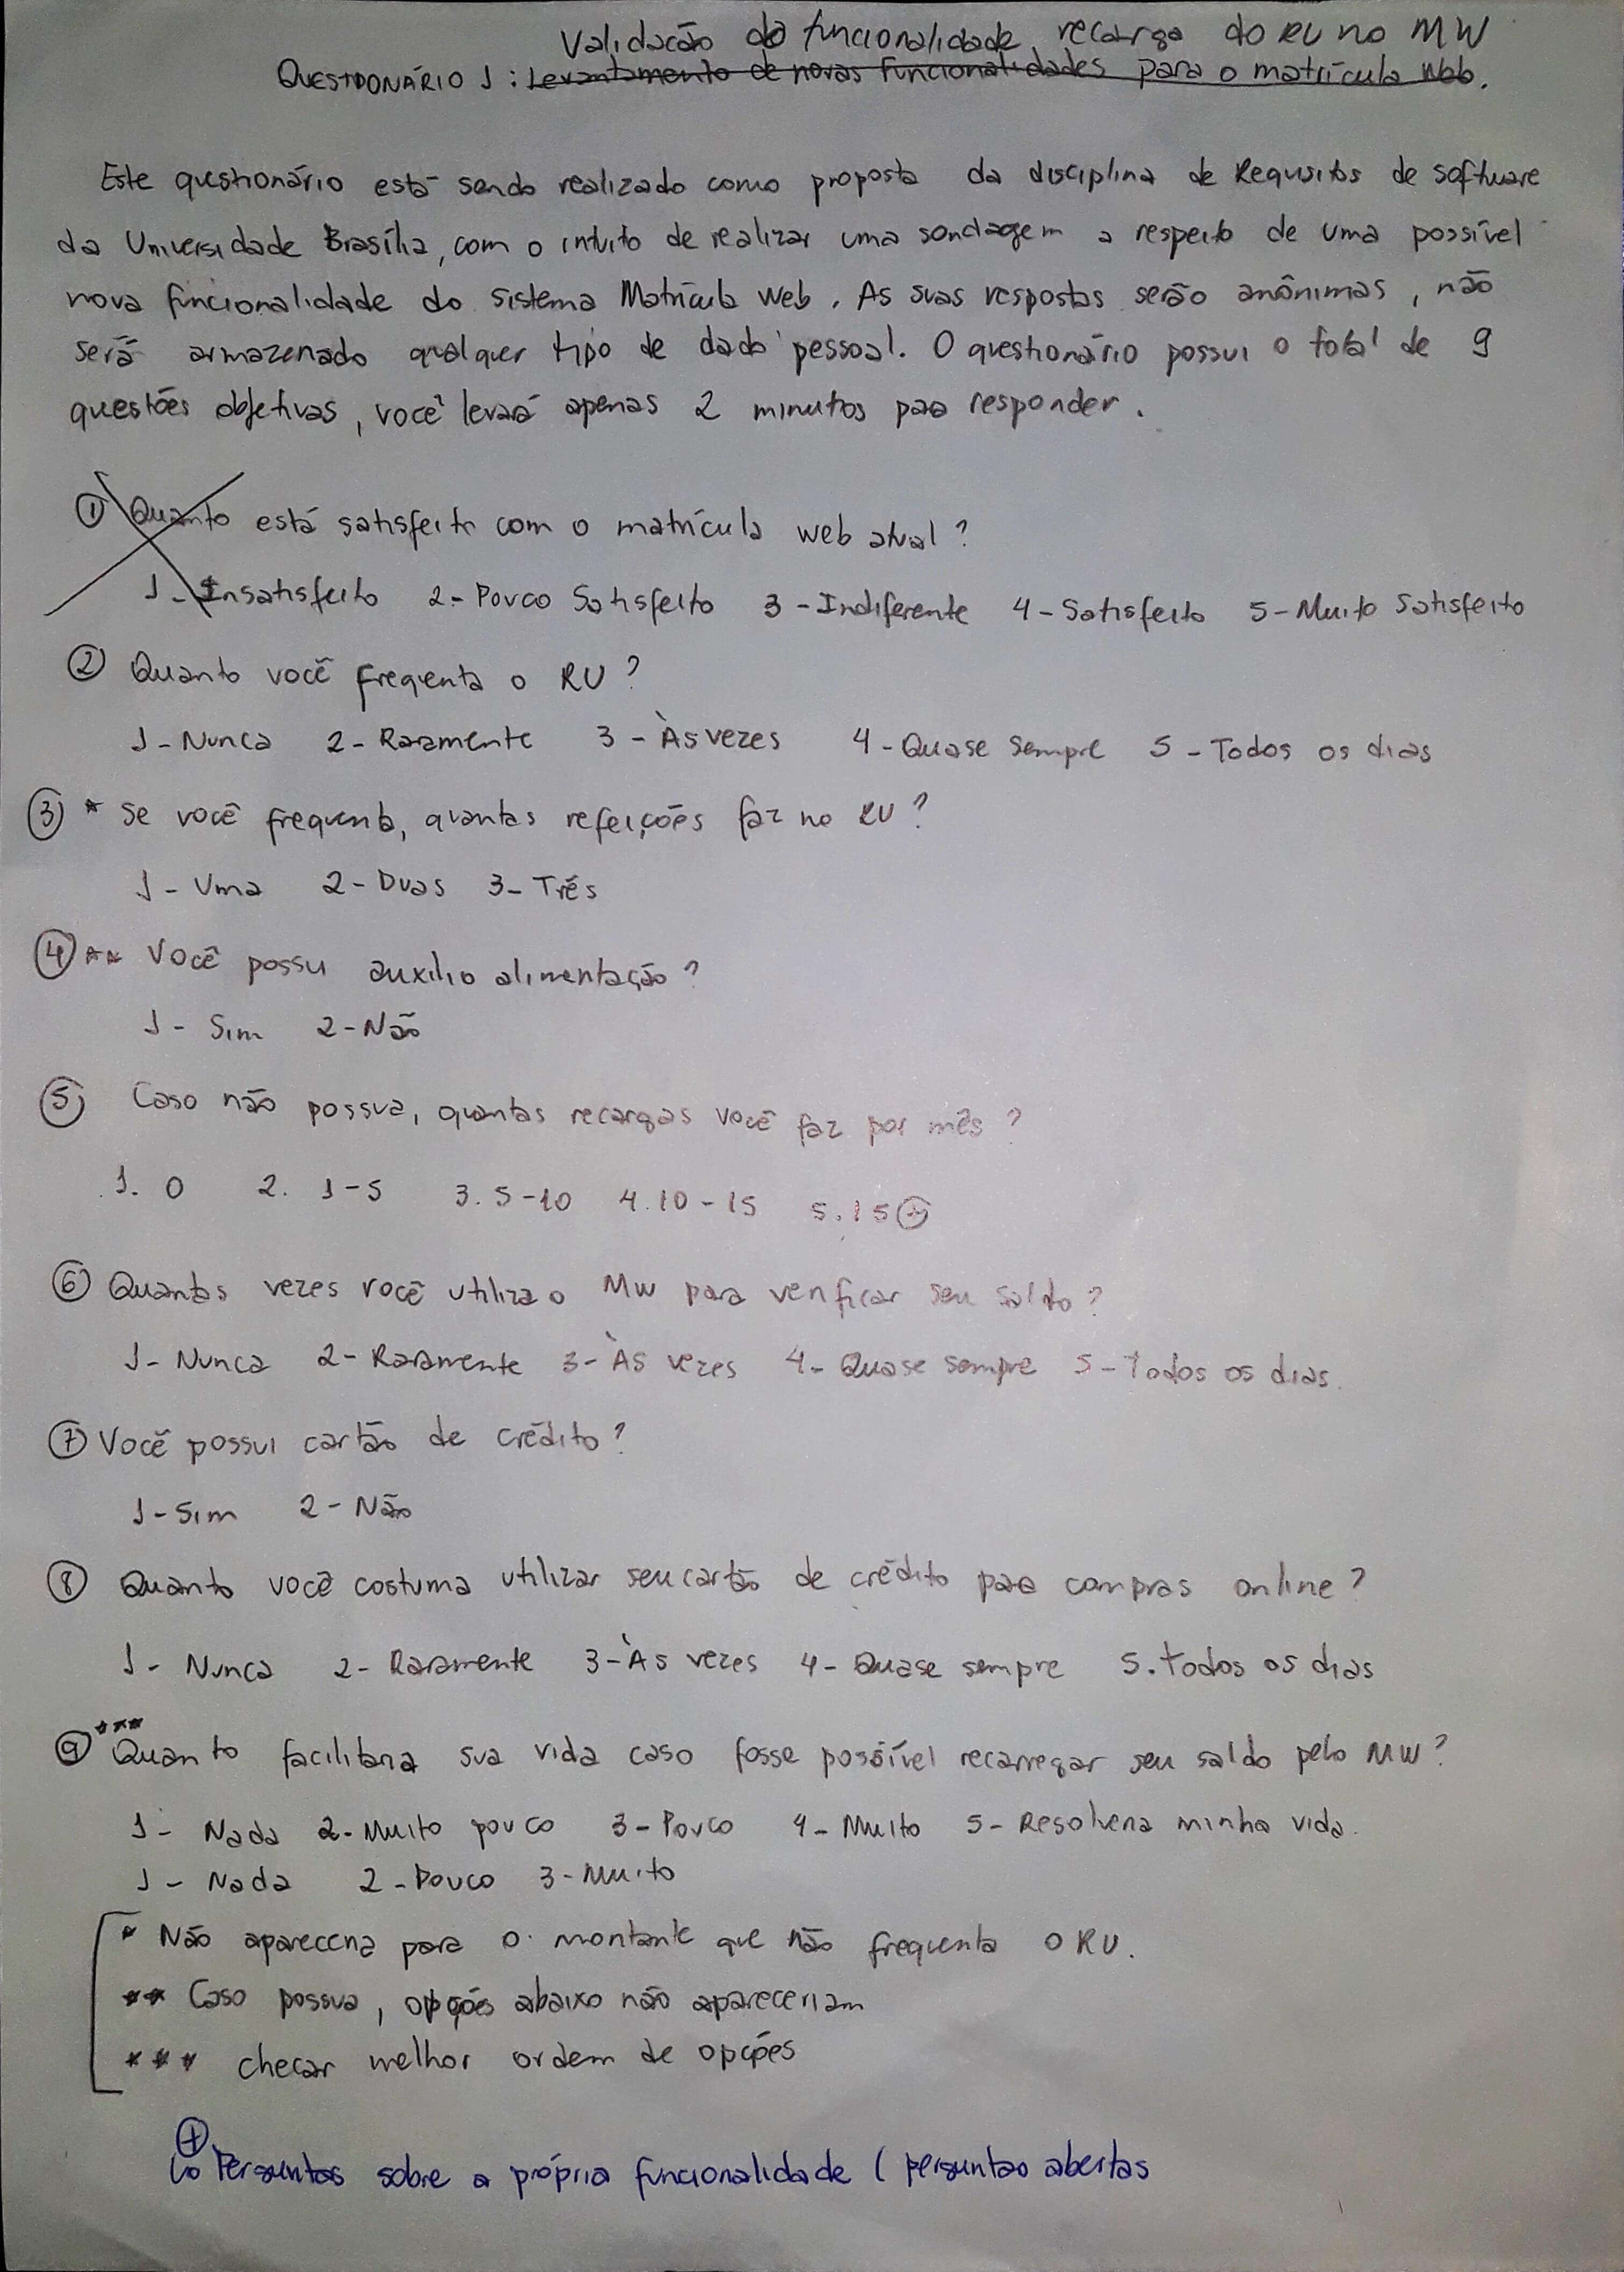 Validação do funcionalidade recarga do RU no MW
QUESTIONÁRIO 1: Levantamento de novas funcionalidades para o matrícula Web.
Este questionário está sendo realizado como proposta da disciplina de Requisitos de software
da Universidade Brasília, com o intuito de realizar uma sondagem a respeito de uma possível
nova funcionalidade do sistema Matrícula Web. As suas respostas serão anônimas, não
será armazenado qualquer tipo de dado pessoal. O questionário possui o total de 9
questões objetivas, você levará apenas 2 minutos para responder.
① Quanto está satisfeito com o matrícula web atual?
1 - Insatisfeito 2 - Pouco Satisfeito 3 - Indiferente 4 - Satisfeito 5 - Muito Satisfeito
② Quanto você freqenta o RU?
1 - Nunca 2 - Raramente 3 - Às vezes 4 - Quase sempre 5 - Todos os dias
③ * Se você frequenta, quantas refeições faz no RU?
1 - Uma 2 - Duas 3 - Três
④ ** Você possui auxílio alimentação?
1 - Sim 2 - Não
⑤ Caso não possua, quantas recargas você faz por mês?
1. 0 2. 1-5 3. 5-10 4. 10-15 5. 15 ⊕
⑥ Quantas vezes você utiliza o MW para verificar seu saldo?
1 - Nunca 2 - Raramente 3 - Às vezes 4 - Quase sempre 5 - Todos os dias.
⑦ Você possui cartão de crédito?
1 - Sim 2 - Não
⑧ Quanto você costuma utilizar seu cartão de crédito para compras online?
1 - Nunca 2 - Raramente 3 - Às vezes 4 - Quase sempre 5. todos os dias
⑨ *** Quanto facilitaria sua vida caso fosse possível recarregar seu saldo pelo MW?
1 - Nada 2 - Muito pouco 3 - Pouco 4 - Muito 5 - Resolveria minha vida.
1 - Nada 2 - Pouco 3 - Muito
* Não apareceria para o montante que não frequenta o RU.
** Caso possua, opções abaixo não apareceriam
*** checar melhor ordem de opções
⊕
↳ Perguntas sobre a própria funcionalidade ( perguntas abertas